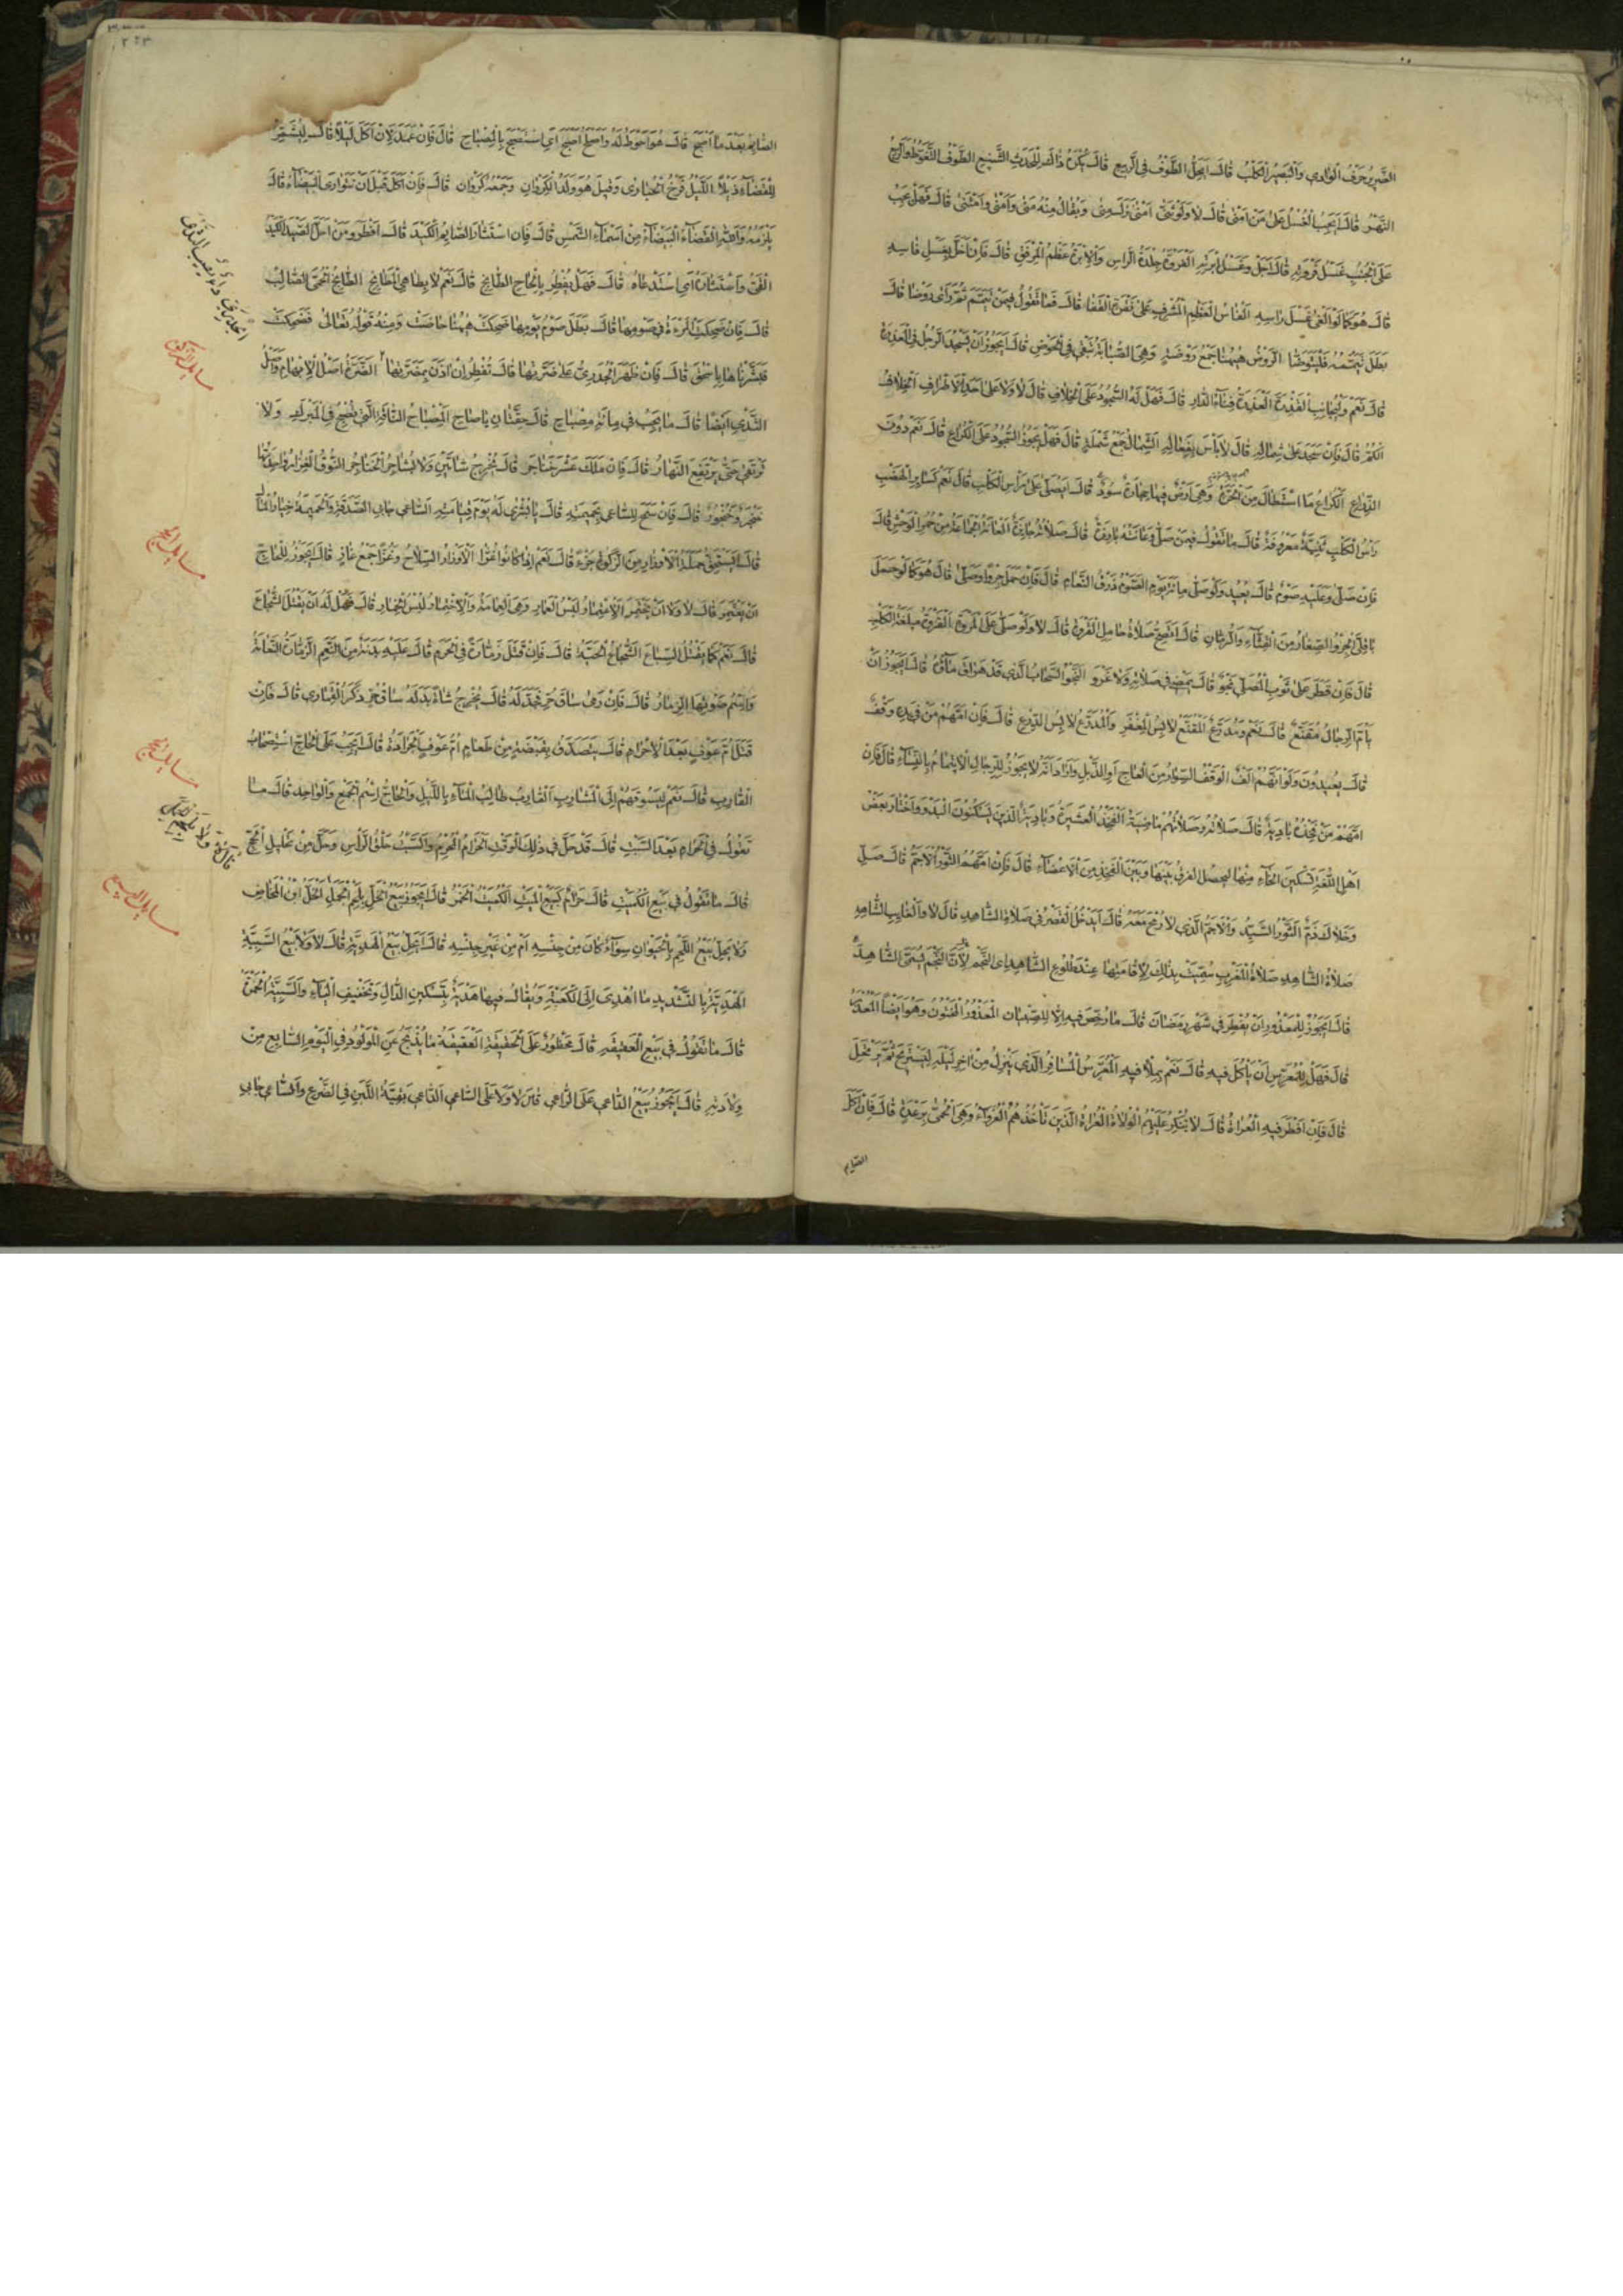 الضرير حرف الوادي والبصير الكلب قال ايحل الطوف في الربيع قال يكره ذاك للحدث الشنيع الطوف التغوط والربيع
النهر قال ايجب الغسل على من امنى قال لا ولو ثنى امنى نزل منى ويقال منه منى وامنى وامتنى قال فهل يجب
على الجنب غسل فروته قال اجل وغسل ابرته الفروة جلدة الراس والابرة عظم المرفق قال فان اخل بغسل فاسه
قال هو كما لو الغى غسل راسه الفاس العظم المشرف على نقرة القفا قال فما تقول فيمن تيمم ثم راى روضا قال
بطل تيممه فليتوضا الروض ههنا جمع روضة وهي الصبابة تبقى في الحوض قال ايجوز ان يسجد الرجل في العذرة
قال نعم وليجانب القذرة العذرة فناء الدار قال فهل له السجود على الخلاف قال لا ولا على احد الاطراف الخلاف
الكم قال فان سجد على شماله قال لا باس بفعاله الشمال جمع شملة قال فهل يجوز السجود على الكراع قال نعم دون
الذراع الكراع ما استطال من الحرة وهي ارض فيها حجارة سود قال ايصلى على راس الكلب قال نعم كسائر الهضب
راس الكلب ثنية معروفة قال ما تقول فيمن صلى وعانته بارزة قال صلاته جائزة العانة الجماعة من حمر الوحش قال
فان صلى وعليه صوم قال يعيد ولو صلى مائة يوم الصوم ذرق النعام قال فان حمل جروا وصلى قال هو كما لو حمل
باقلى الجرو الصغار من القثاء والرمان قال اتصح صلاة حامل القروة قال لا ولو صلى على المروة القروة ميلغة الكلب
قال فان قطر على ثوب المصلي نجو قال يمضي في صلاته ولا غرو النجو السحاب الذي قد هراق ماؤه قال ايجوز ان
يأم الرجال مقنع قال نعم ومدرع المقنع لابس المغفر والمدرع لابس الدرع قال فان امهم من في يده وقف
قال يعيدون ولو انهم الف الوقف السوار من العاج او الذبل واراد انه لا يجوز للرجال الايتمام بالنساء قال فان
امهم من فخذه بادية قال صلاته وصلاتهم ماضية الفخذ العشيرة وبادية الذين يسكنون البدو واختار بعض
اهل اللغة تسكين الخاء منها ليحصل الفرق بينها وبين الفخذ من الاعضاء قال فان امهم الثور الاجم قال صل
وخلاك ذم الثور السيد والاجم الذي لا رمح معه قال ايدخل القصر في صلاة الشاهد قال لا والغايب الشاهد
صلاة الشاهد صلاة المغرب سميت بذلك لاقامتها عند طلوع الشاهد اي النجم لان النجم يسمى الشاهد
قال ايجوز للمعذور ان يفطر في شهر رمضان قال ما رخص فيه الا للصبيان المعذور المختون وهو ايضا المعذر
قال فهل للمعرس ان ياكل فيه قال نعم بملا فيه المعرس المسافر الذي ينزل من اخر ليله ليستريح ثم يرتحل
قال فان افطر فيه العراة قال لا ينكر عليهم الولاة العراة الذين تاخذهم العرواء وهي الحمى برعدة قال فان اكل
الصايم
الصايم بعد ما اصبح قال هو احوط له واصلح اصبح اي استصبح بالمصباح قال فان عمد لان اكل ليلا قال ليشمر
للقضاء ذيلا الليل فرخ الحبارى وقيل هو ولد الكروان وجمعه كروان قال فان اكل قبل ان تتوارى البيضاء قال
يلزمه والله القضاء البيضاء من اسماء الشمس قال فان استثار الصايم الكيد قال افطر ومن احل الصيد الكيد
القيء واستثاره اي استدعاه قال فهل يفطر بالحاح الطابخ قال نعم لا بطاهي المطابخ الطابخ الحمى الصالب
قال فان ضحكت المرءة في صومها قال بطل صوم يومها ضحكت ههنا حاضت ومنه قوله تعالى فضحكت
فبشرناها باسحق قال فان ظهر الجدري على ضرتها قال تفطر ان اذن بمضرتها الضرة اصل الابهام واصل
الثدي ايضا قال ما يجب في مائة مصباح قال حقتان يا صاح المصباح الناقة التي تصبح في المبرك ولا
ترتعي حتى يرتفع النهار قال فان ملك عشر خناجر قال يخرج شاتين ولا يشاجر الخناجر النوق الغزار واحدتها
خنجر وخنجور قال فان سمح للساعي بحميمته قال يا بشرى له يوم قيامته الساعي جابي الصدقة والحميمة خيار المال
قال ايستحق حملة الاوزار من الزكوة جزءا قال نعم اذا كانوا غزا الاوزار السلاح وغزا جمع غاز قال ايجوز للحاج
ان يعتمر قال لا ولا ان يختمر الاعتمار لبس العمار وهي العمامة والاختمار لبس الخمار قال فهل له ان يقتل الشجاع
قال نعم كما يقتل السباع الشجاع الحية قال فان قتل زمارة في الحرم قال عليه بدنة من النعم الزمارة النعامة
واسم صوتها الزمار قال فان رمى ساق حر فجدله قال يخرج شاة بدله ساق حر ذكر القماري قال فان
قتل ام عوف بعد الاحرام قال يتصدق بقبضة من طعام ام عوف الجرادة قال ايجب على الحاج استصحاب
القارب قال نعم ليسوقهم الى المشارب القارب طالب الماء بالليل والحاج اسم الجمع والواحد قال ما
تقول في الحرام بعد السبت قال قد حل في ذلك الوقت الحرام المحرم والسبت حلق الراس وحل من تحليل الحج
قال ما تقول في بيع الكميت قال حرام كبيع الميت الكميت الخمر قال ايجوز بيع الخل بلحم الجمل الخل ابن المخاض
ولا يحل بيع اللحم بالحيوان سواء كان من جنسه ام من غير جنسه قال ايحل بيع الهدية قال لا ولا بيع السبية
الهدية بالتشديد ما اهدي الى الكعبة ويقال فيها هدية بتسكين الدال وتخفيف الياء والسبية الخمر
قال ما تقول في بيع العقيقة قال محظور على الحقيقة العقيقة ما يذبح عن المولود في اليوم السابع من
ولادته قال ايجوز بيع الداعي على الراعي قال لا ولا على الساعي الداعي بقية اللبن في الضرع والساعي جابي
مسايل الزكوة
مسايل الحج
مسايل الحج
مسايل البيع